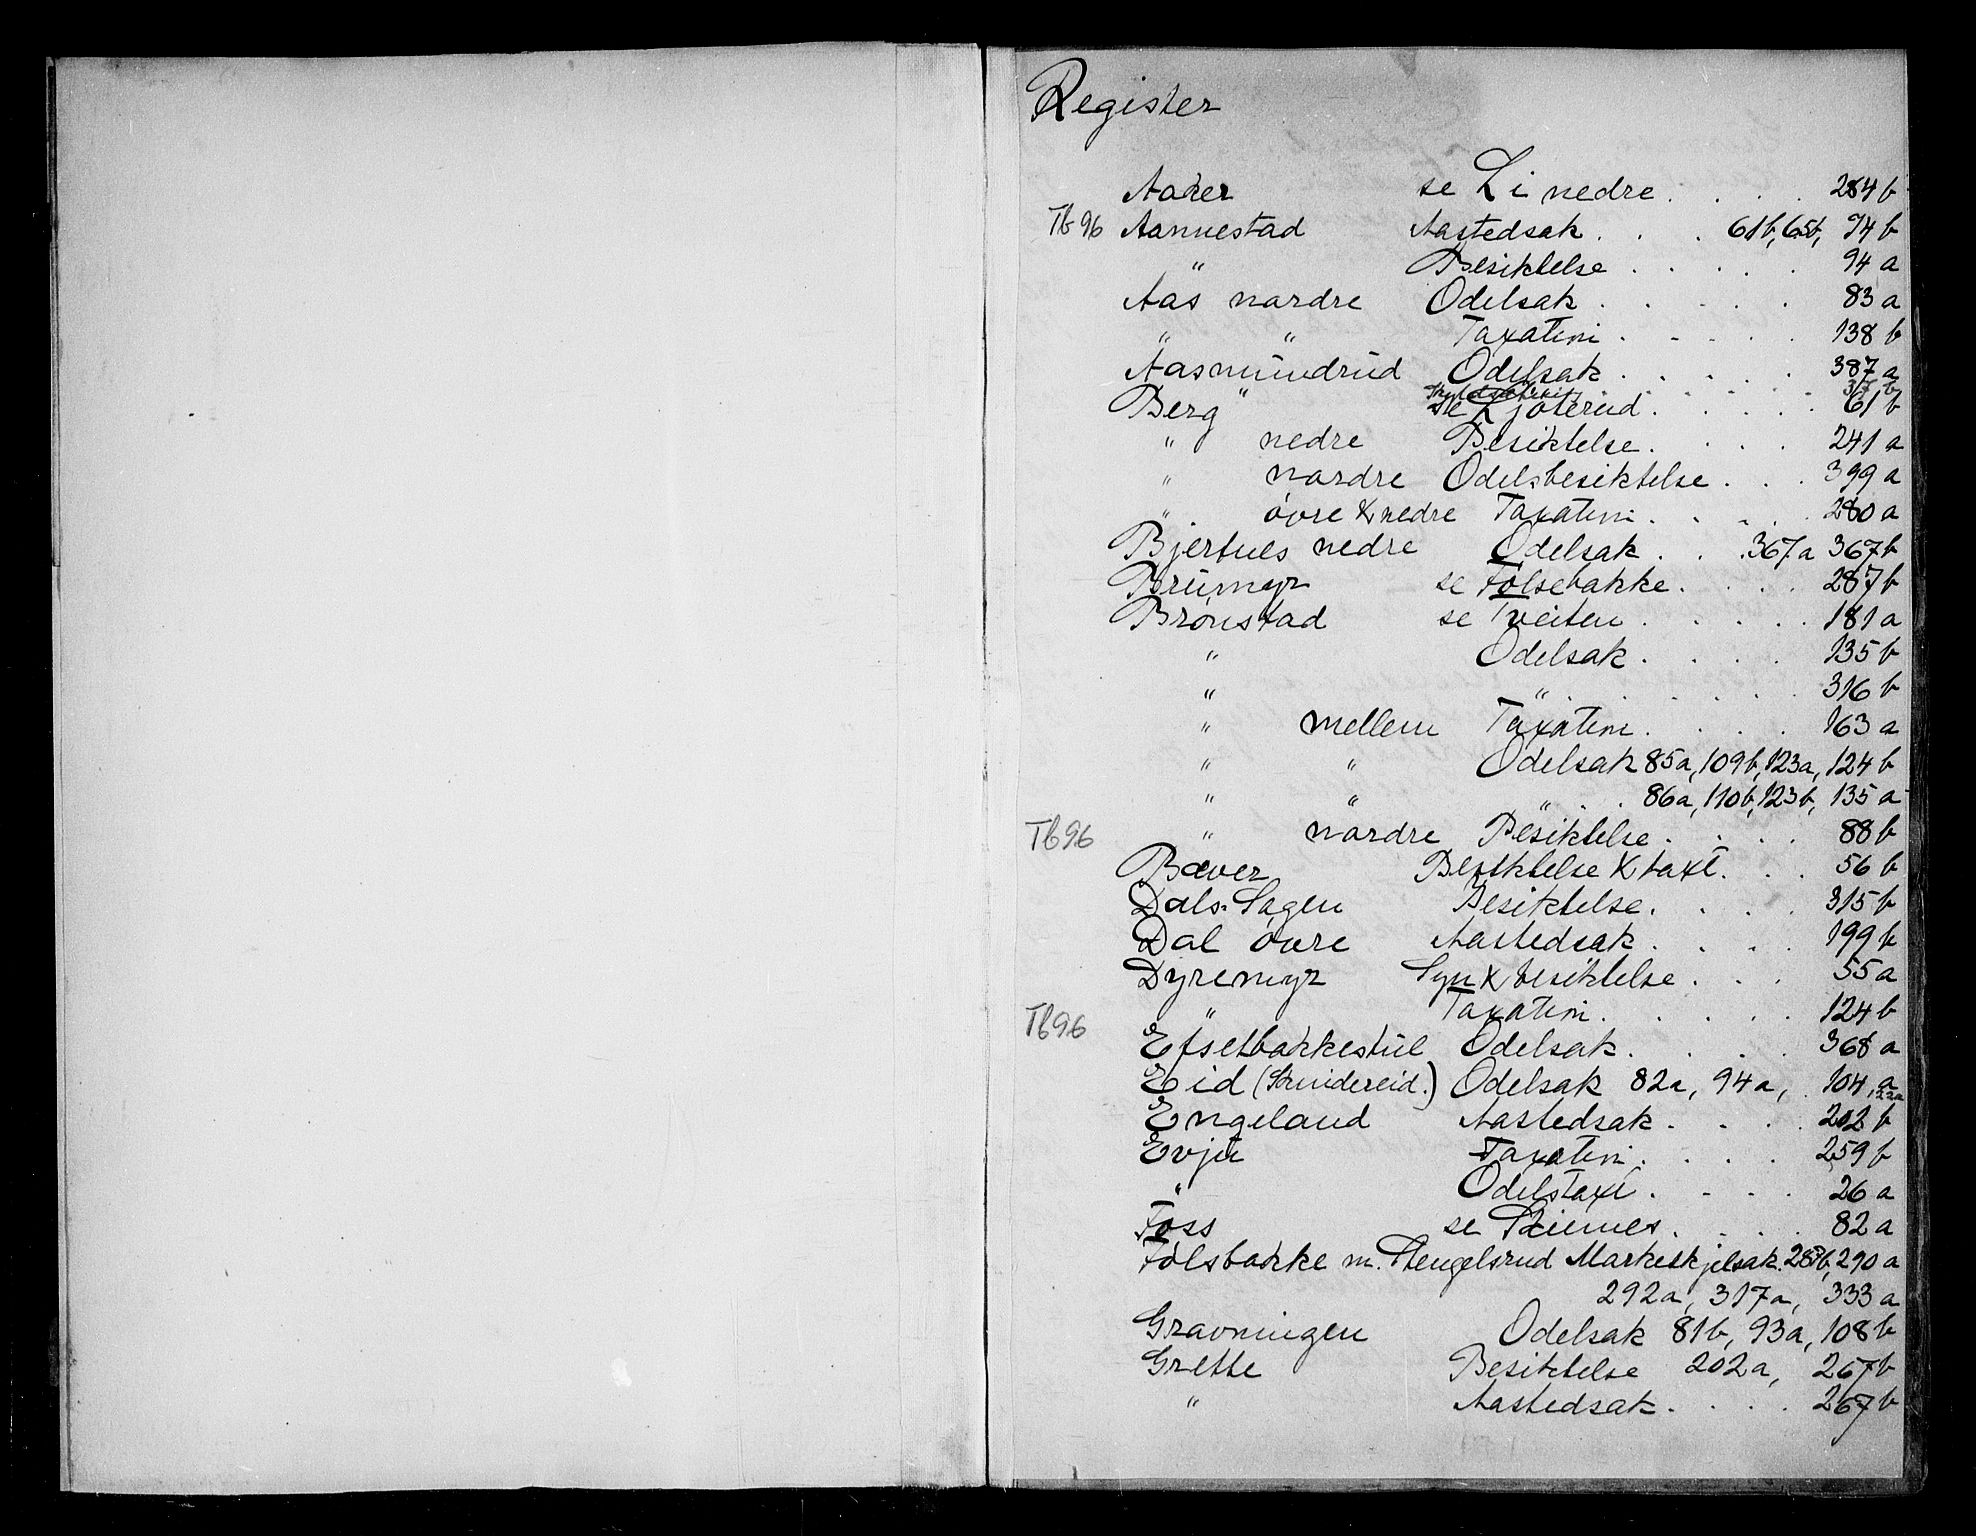 Register
Aaker se Li nedre . . . . 284 b
Tb 96 Aannestad Aastedsak . . . 61b, 65b, 74 b
" Besiktelse . . . . . 94 a
Aas nordre Odelsak . . . . . 83 a
" " Taxation . . . . . 138 b
Aasmundrud Odelsak . . . . . 387 a
" 317 b
Berg se Ljøterud . . . . . 61 b
" nedre Besiktelse . . . . 241 a
" nordre Odelsbesiktelse . . . 399 a
" øvre & nedre Taxation . . . . . 280 a
Bjertnes nedre Odelsak . . . 367a 367b
Brumyr se Følsebakke . . . . 287 b
Brønstad se Tveiten . . . . . 181 a
" Odelsak . . . . 135 b
" " . . . . . 316 b
" mellem Taxation . . . . 163 a
" " Odelsak 85a, 109b, 123a, 124 b
" " " . . 86a, 110b, 123b, 135 a
Tb 96 " nordre Besiktelse . . . . 88 b
Bæver Besiktelse & taxt . . . 56 b
Dals-Sagen Besiktelse . . . . 315 b
Dal øvre Aastedsak . . . . 199 b
Dyremyr Syn & besiktelse . . . 55 a
" Taxation . . . . . 124 b
Tb 96 Efsetbakkestul Odelsak . . . . 368 a
Eid ( ) Odelsak 82a, 94a, 104, a
122a
Engeland Aastedsak . . . . 202 b
Evju Taxation . . . . 259 b
" Odelstaxt . . . . 26 a
Foss se . . . . 82 a
Følsbakke m. Stengelsrud Markeskjelsak. 287b, 290 a
292a, 317a, 333 a
Gravningen Odelsak 81b, 93a, 108 b
Grette Besiktelse 202a, 267 b
" Aastedsak . . . . 267 b